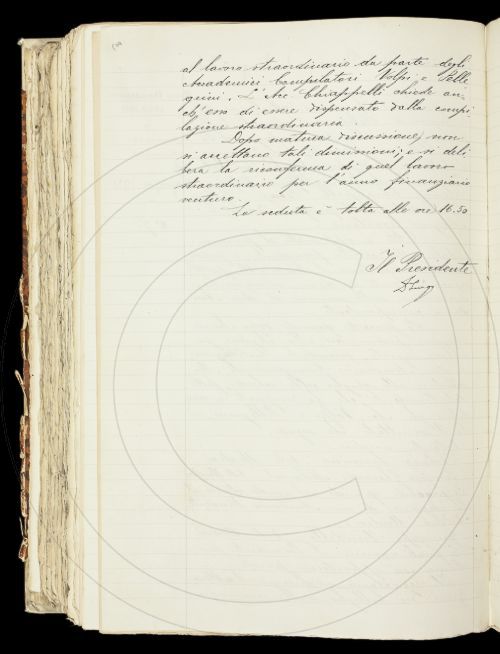 al lavoro straordinario da parte degli
Accademici Compilatori Volpi e Pelle
grini. L'Acc Chiappelli chiede an
ch'esso di essere dispensato dalla compi
lazione straordinaria.
Dopo matura discussione, non
si accettano tali dimissioni; e si deli
bera la riconferma di quel lavoro
straordinario per l'anno finanziario
venturo.
La seduta è tolta alle ore 16.50
Il Presidente